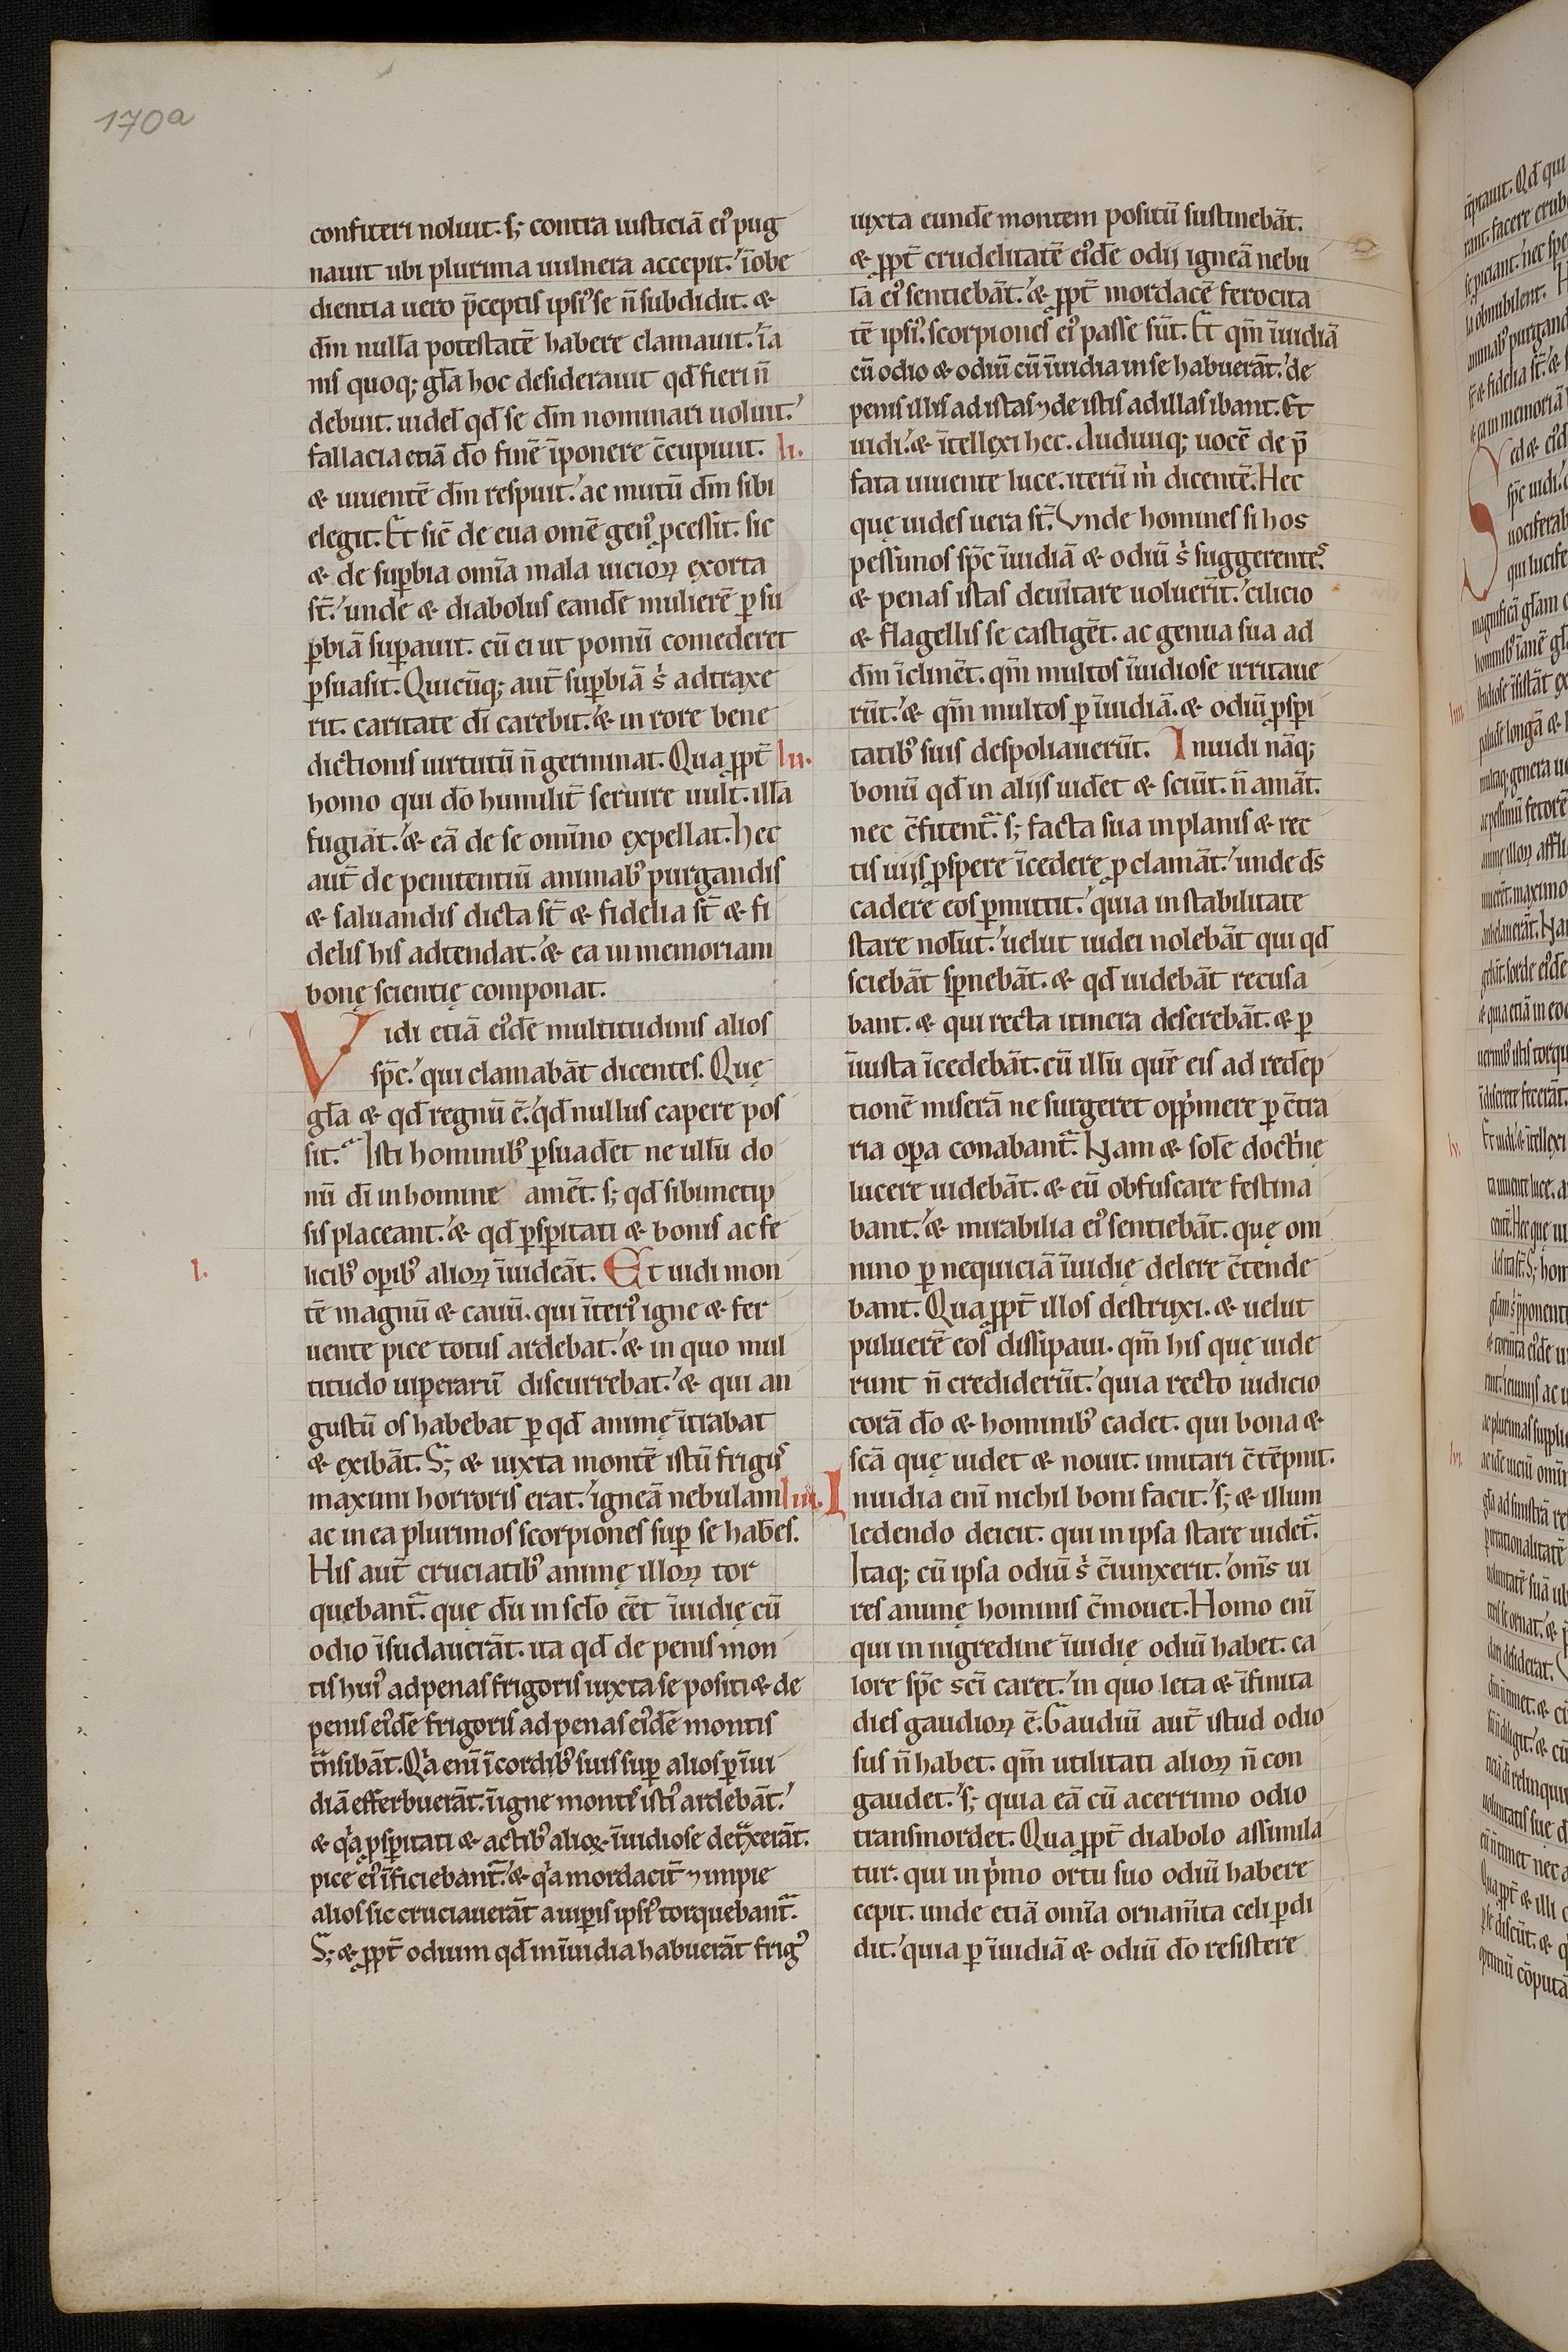 170a
confiteri noluit. s; contra iusticiā eiꝰ pug
nauit ubi plurima uulnera accepit.' īobe
dientia uero p̄ceptis ipsiꝰ se n̄ subdidit. &
dm̄ nullā potestatē habere clamauit.' īa
nis quoq; gl̄a hoc desiderauit qd̄ fieri n̄
debuit. uidel̄ qd̄ se dm̄ nominari uoluit.'
fallacia etiā dō finē īponere c̄cupiuit. li.
& uiuentē dm̄ respuit.' ac mutū dm̄ sibi
elegit. Et sic̄ de eua om̄e genꝰ ꝓcessit. sic
& de suꝑbia om̄ia mala uicioꝝ exorta
st̄.' unde & diabolus eandē mulierē ꝑ su
ꝑbiā suꝑauit. cū ei ut pomū comederet
ꝑsuasit. Quicūq; aut̄ suꝑbiā s̉ adtraxe
rit. caritate dī carebit.' & in rore bene
dictionis uirtutū n̄ germinat. Qua ꝓpt̄ lii.
homo qui dō humilit̄ seruire uult. illā
fugiāt.' & eā de se om̄ino expellat. Hec
aut̄ de penitentiū animabꝰ purgandis
& saluandis dicta st̄ & fidelia st̄ & fi
delis his adtendat.' & ea in memoriam
bonę scientię componat.
Vidi etiā eiꝰdē multitudinis alios
sp̄c.' qui clamabāt dicentes. Quę
gl̄a & qd̄ regnū ē.' qd̄ nullus capere pos
sit. Isti hominibꝰ ꝑsuadēt ne ullū do
nū dī in homine amēt. s; qd̄ sibimetip
sis placeant.' & qd̄ ꝓsꝑitati & bonis ac fe
l. licibꝰ oꝑibꝰ alioꝝ īuideāt. Et uidi mon
tē magnū & cauū. qui īteriꝰ igne & fer
uente pice totus ardebat.' & in quo mul
titudo uiperarū discurrebat.' & qui an
gustū os habebat ꝑ qd̄ animę ītrabāt
& exibāt. S; & iuxta montē istū frigꝰ
maximi horroris erat.' igneā nebulam liii.
ac in ea plurimos scorpiones suꝑ se hab̄es.
His aut̄ cruciatibꝰ animę illoꝝ tor
quebant᷑. que dū in scl̄o eēt īuidię cū
odio īsudauerāt. ita qd̄ de penis mon
tis huiꝰ ad penas frigoris iuxta se positi & de
penis eiꝰdē frigoris ad penas eiꝰdē montis
tn̄sibāt. Qa enī ī cordibꝰ suis suꝑ alios ꝑ īui
diā efferbuerāt. ī igne montis istiꝰ ardebāt.'
& qa ꝓsꝑitati & actibꝰ alioꝝ īuidiose detxerāt.
pice eiꝰ īficiebant᷑.' & qa mordacit̄ ⁊ impie
alios sic cruciauerāt a uiꝑis ipsiꝰ torquebant᷑.
S; & ꝓpt̄ odium qd̄ in īuidia habuerāt frigꝰ
iuxta eundē montem positū sustinebāt.
& ꝓpt̄ crudelitatē eiꝰdē odij igneā nebu
lā eiꝰ sentiebāt.' & ꝓpt̄ mordacē ferocita
tē ipsiꝰ. scorpiones eiꝰ passe sūt. Et qm̄ īuidiā
cū odio & odiū cū īuidia in se habuerāt.' de
penis illis ad istas ⁊ de istis ad illas ibant. Et
uidi.' & ītellexi hec. Audiuiq; uocē de p̄
fata uiuente luce. iterū m̉ dicentē. Hec
quę uides uera st̄. Vnde homines si hos
pessimos sp̄c īuidiā & odiū s̉ suggerentes
& penas istas deuitare uoluerīt.' cilicio
& flagellis se castigēt. ac genua sua ad
dm̄ īclinēt. qm̄ multos īuidiose irritaue
rūt.' & qm̄ multos ꝑ īuidiā. & odiū ꝓsꝑi
tatibꝰ suis despoliauerūt. Inuidi nāq;
bonū qd̄ in alijs uidēt & sciūt. n̄ amāt.
nec c̄fitent᷑. s; facta sua in planis & rec
tis uijs ꝓspere īcedere ꝓclamāt.' unde ds̄
cadere eos ꝑmittit.' quia in stabilitate
stare nolūt.' uelut iudei nolebāt qui qd̄
sciebāt sꝑnebāt. & qd̄ uidebāt recusa
bant. & qui recta itinera deserebāt. & ꝑ
īiusta īcedebāt. cū illū qui ēr eis ad redēp
tionē miserā ne surgeret opp̉mere ꝑ c̄tra
ria oꝑa conabant᷑. Nam & solē doct̉nę
lucere uidebāt. & eū obfuscare festina
bant.' & mirabilia eiꝰ sentiebāt. quę om
nino ꝑ nequiciā īuidię delere c̄tende
bant. Qua ꝓpt̄ illos destruxi. & uelut
puluerē eos dissipaui. qm̄ his quę uide
runt n̄ crediderūt.' quia recto iudicio
corā dō & hominibꝰ cadet. qui bona &
scā quę uidet & nouit. imitari c̄tēpnit.
Inuidia enī nichil boni facit.' s; & illum
ledendo deicit. qui in ipsa stare uidet᷑.
Itaq; cū ipsa odiū s̉ c̄iunxerit.' oms̄ ui
res animę hominis c̄mouet. Homo enī
qui in nigredine īuidię odiū habet. ca
lore sp̄c scī caret.' in quo leta & īfinita
dies gaudioꝝ ē. Gaudiū aut̄ istud odio
sus n̄ habet. qm̄ utilitati alioꝝ n̄ con
gaudet.' s; quia eā cū acerrimo odio
transmordet. Qua ꝓpt̄ diabolo assimila
tur. qui in p̉mo ortu suo odiū habere
cepit. unde etiā om̄ia ornam̄ta celi ꝑdi
dit.' quia ꝑ īuidiā & odiū dō resistere